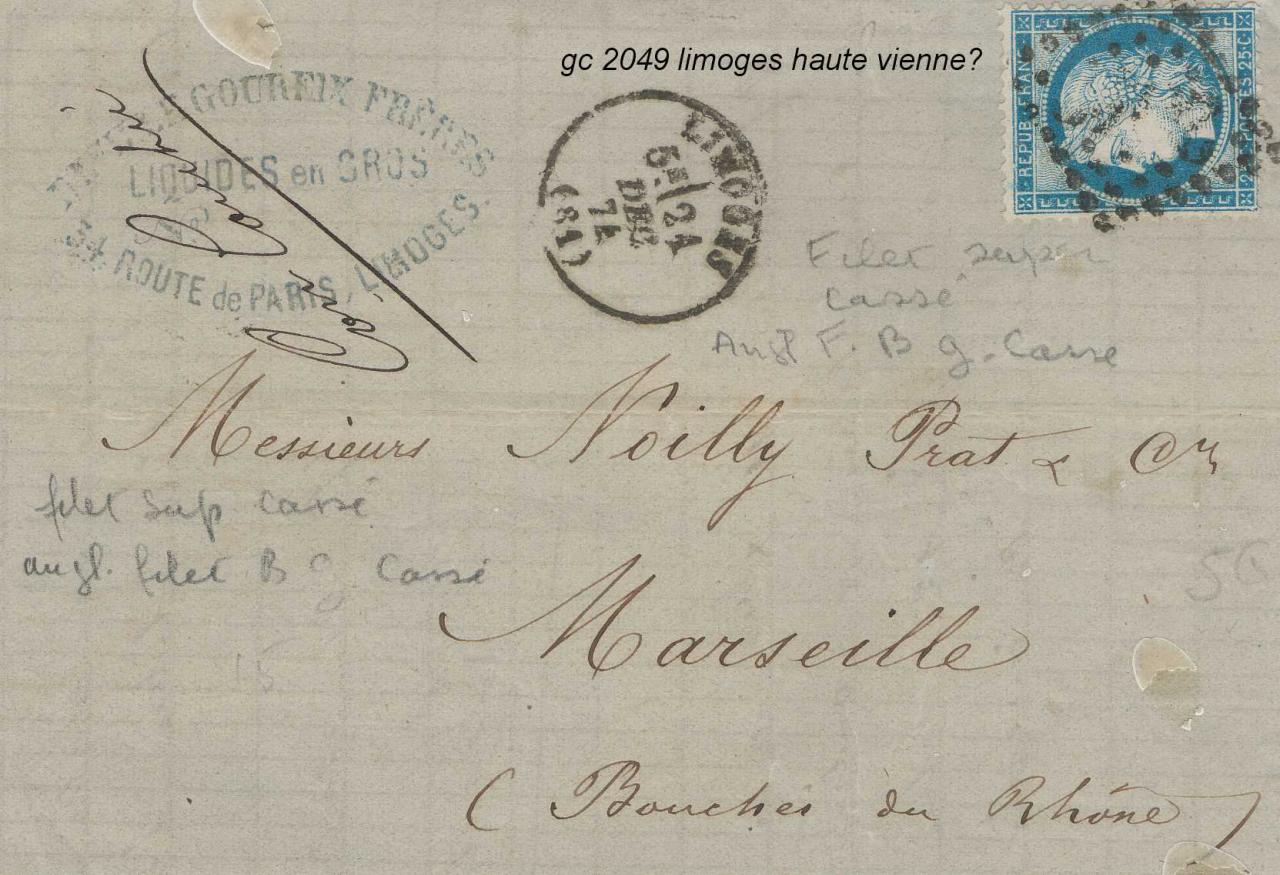 gc 2049 limoges haute vienne?
GOUREIX FRÈRES
LIQUIDES en GROS
34, ROUTE de PARIS, LIMOGES.
LIMOGES
5E/ 24
DEC
74
(81)
REPUB. FRANC
POSTES 25 C
Filet super
cassé
Angl F. B g. Casse
Messieurs Noilly Prat & Cie
filet sup cassé
angl. filet B g Cassé
56
Marseille
15
(Bouches du Rhône)